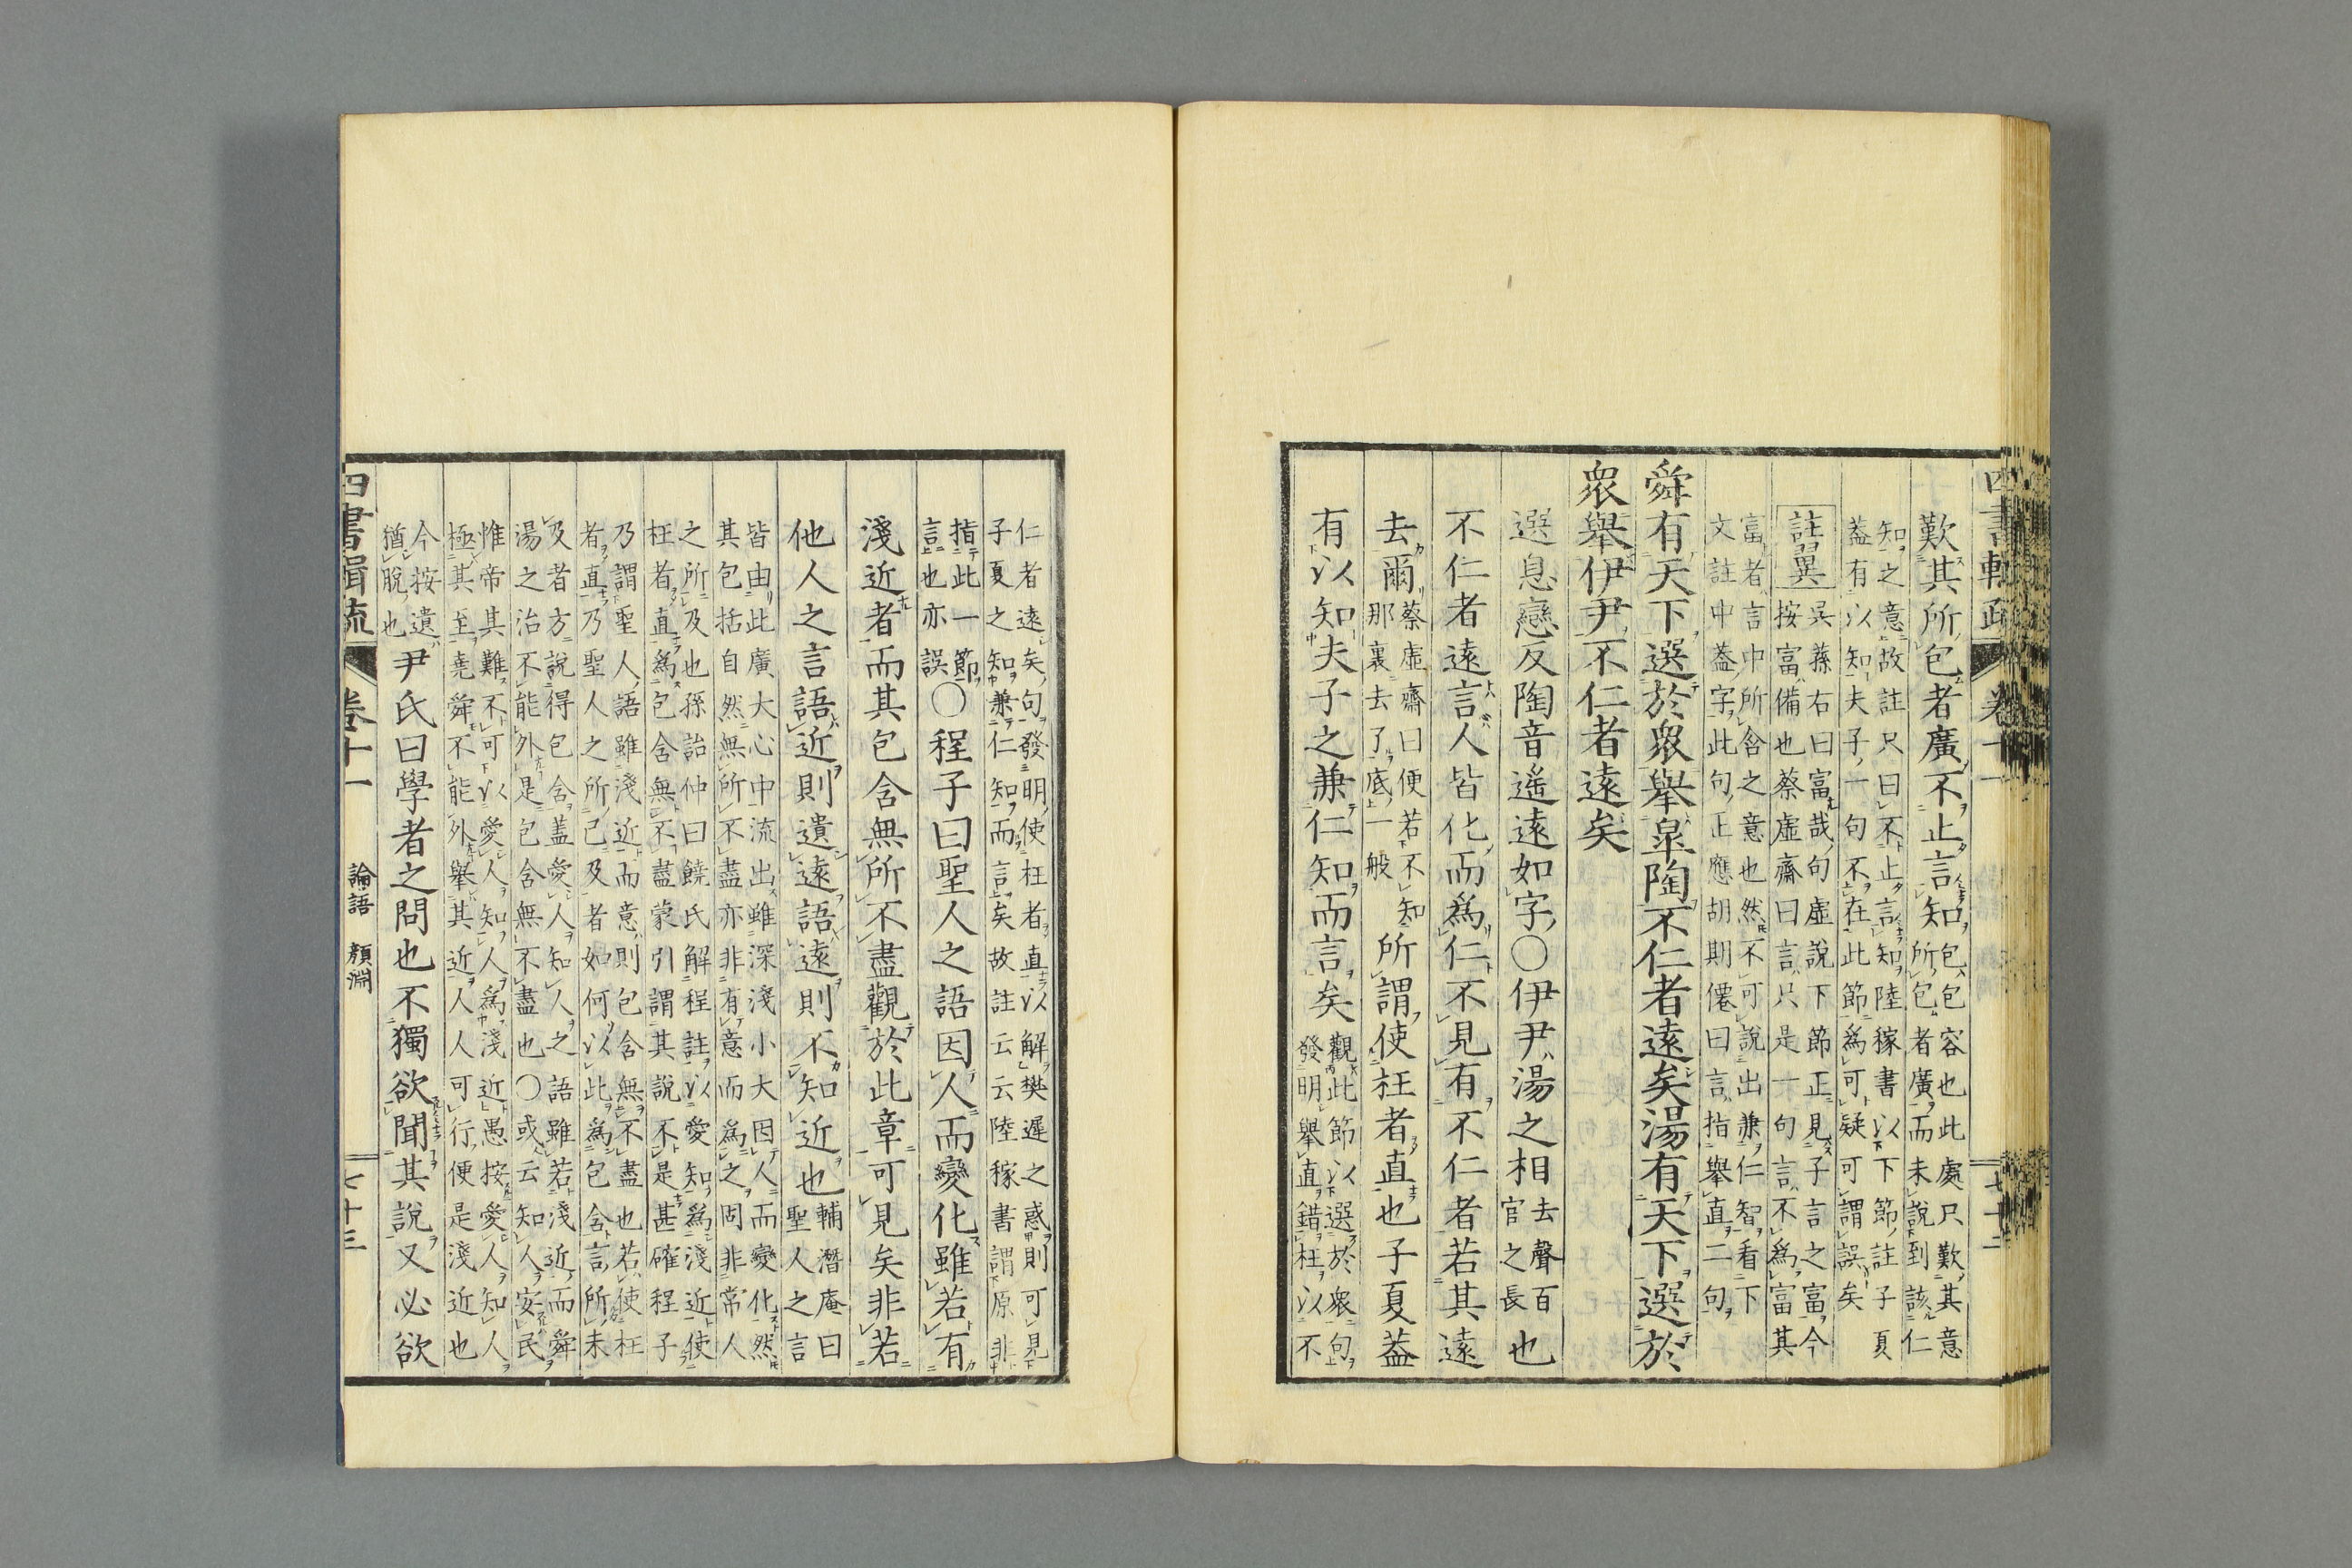 四書輯疏 卷十一 七十二
歎其所包者廣不止言知包包容也此處只歎其意
所包者廣而未說到該仁
知之意故註只曰不止言知陸稼書以下節註子夏
蓋有以知夫子一句不在此節為可疑可謂誤矣
註翼 吳蓀右曰富哉句虛說下節正見子言之富今
按富備也蔡虛齋曰言只是一句言不為富其
富者言中所含之意也然不可說出兼仁智看下
文註中蓋字此句正應胡期僊曰言指舉直二句
舜有天下選於眾舉皐陶不仁者遠矣湯有天下選於
眾舉伊尹不仁者遠矣
選息戀反陶音遙遠如字○伊尹湯之相去聲百官之長也
不仁者遠言人皆化而為仁不見有不仁者若其遠
去爾蔡虛齋曰便若不知那裏去了底一般所謂使枉者直也子夏蓋
有以知夫子之兼仁知而言矣觀此節以選於眾句發明舉直錯枉以不
仁者遠矣句發明使枉者直以解樊遲之惑則可見
子夏之知兼仁知而言矣故註云云陸稼書謂原非
指此一節言也亦誤○程子曰聖人之語因人而變化雖若有
淺近者而其包含無所不盡觀於此章可見矣非若
他人之言語近則遺遠語遠則不知近也輔潛庵曰聖人之言
皆由此廣大心中流出雖深淺小大因人而變化然
其包括自然無所不盡亦非有意而為之固非常人
之所及也孫詒仲曰饒氏解程註以愛知為淺近使
枉者直為包含無不盡蒙引謂其說不是甚確程子
乃謂聖人語雖淺近而意則包含無不盡也若使枉
者直乃聖人之所已及者如何以此為包含言所未
及者方說得包含蓋愛人知人之語雖若淺近而舜
湯之治不能外是包含無不盡也○或云知人安民
惟帝其難不可以愛人知人為淺近愚按愛人知人
極其至堯舜不能外舉其近人人可行便是淺近也
今按遺猶脫也尹氏曰學者之問也不獨欲聞其說又必欲
四書輯疏 卷十一 論語 顏淵 七十三